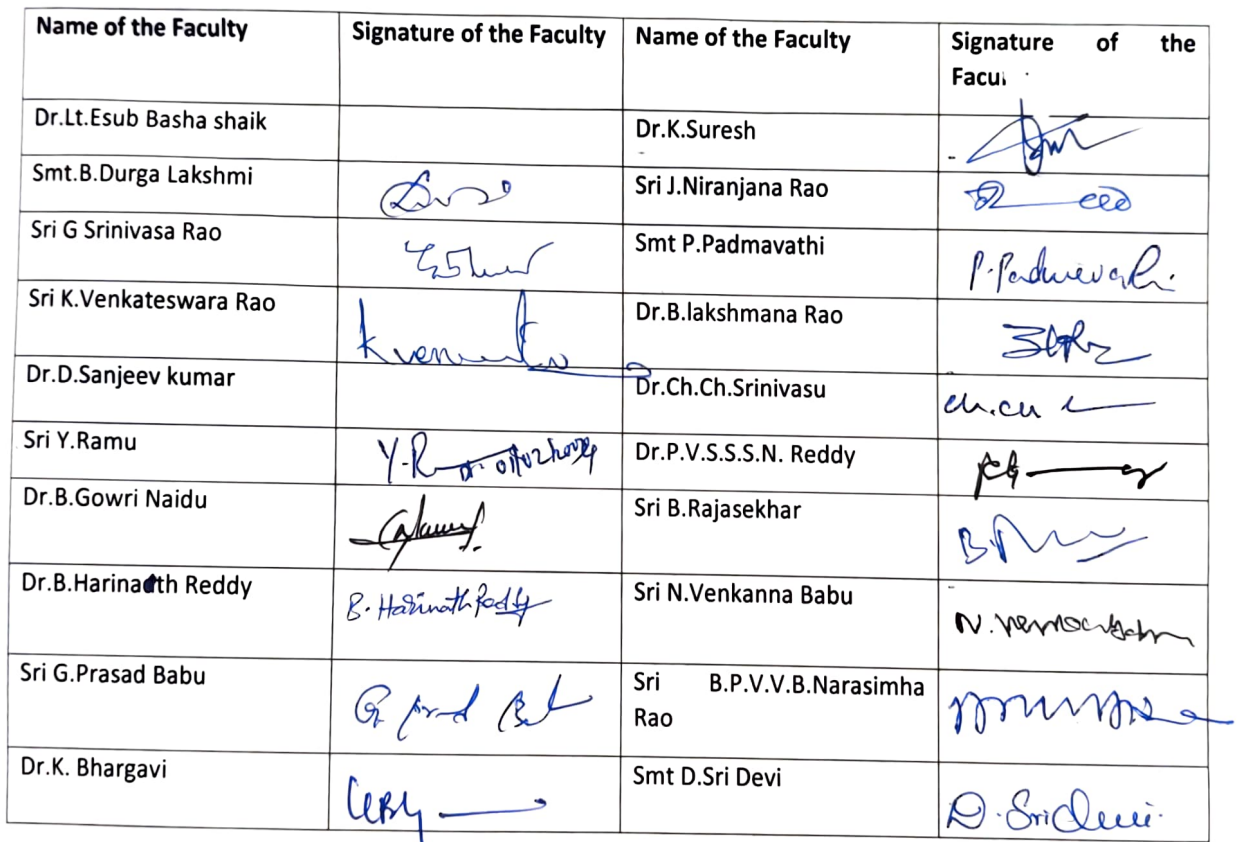 Name of the Faculty Signature of the Faculty Name of the Faculty Signature of the
Facul
Dr.Lt.Esub Basha shaik Dr.K.Suresh
Smt.B.Durga Lakshmi Sri J.Niranjana Rao
Sri G Srinivasa Rao Smt P.Padmavathi P.Padmavathi
Sri K.Venkateswara Rao Dr.B.lakshmana Rao
Dr.D.Sanjeev kumar Dr.Ch.Ch.Srinivasu ch.ch
Sri Y.Ramu Y.R Dr.P.V.S.S.S.N. Reddy
Dr.B.Gowri Naidu Sri B.Rajasekhar
Dr.B.Harinadth Reddy B. Harinath Reddy Sri N.Venkanna Babu
Sri G.Prasad Babu Sri B.P.V.V.B.Narasimha
Rao
Dr.K. Bhargavi Smt D.Sri Devi D. Sri Devi